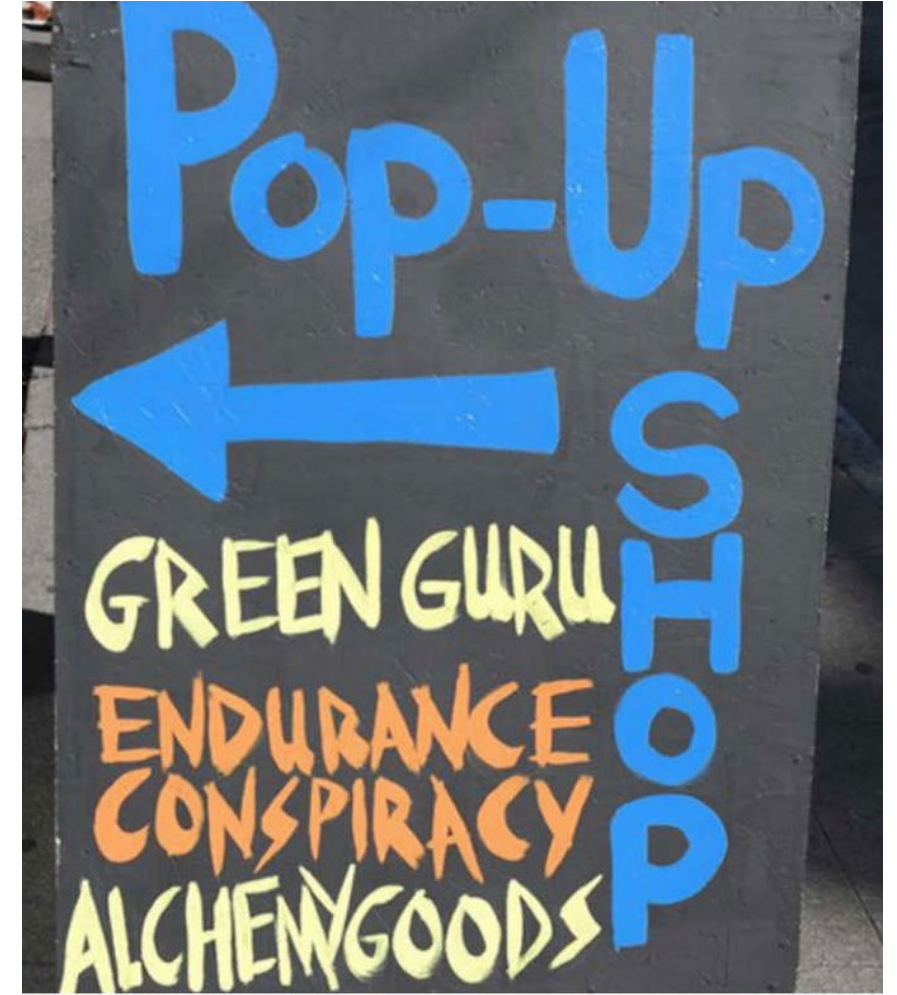 Pop-Up
SHOP
GREEN GURU
ENDURANCE
CONSPIRACY
ALCHEMYGOODS